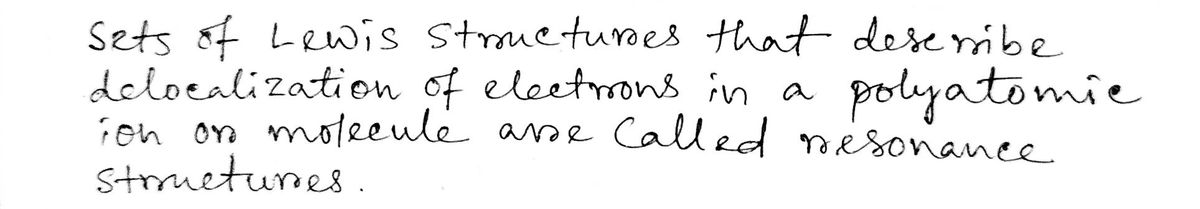 Sets of Lewis Structures that describe
delocalization of electrons in a polyatomic
ion or molecule are Called resonance
structures.